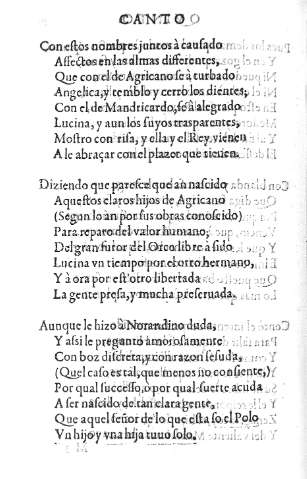 CANTO
Con estos nombres juntos à causado
Affectos en las almas differentes,
Que con el de Agricano se à turbado
Angelica, y temblo y cerrò los dientes;
Con el de Mandricardo, se à alegrado
Lucina, y aun los suyos trasparentes,
Mostro con risa, y ella y el Rey vienen
A le abraçar con el plazer que tienen.
Diziendo que paresce que an nascido
Aquestos claros hijos de Agricano
(Segun lo an por sus obras conoscido)
Para reparo del valor humano,
Del gran furor del Orco libre à sido
Lucina vn tiempo por el otro hermano,
Y à ora por est'otro libertada
La gente presa, y mucha preseruada.
Aunque le hizo à Norandino duda,
Y assi le preguntò amorosamente
Con boz discreta, y con razon sesuda,
(Que el caso es tal, que menos no consiente,)
Por qual successo, o por qual suerte acuda
A ser nascido de tan clara gente,
Que aquel señor de lo que esta so el Polo
Vn hijo y vna hija tuuo solo.